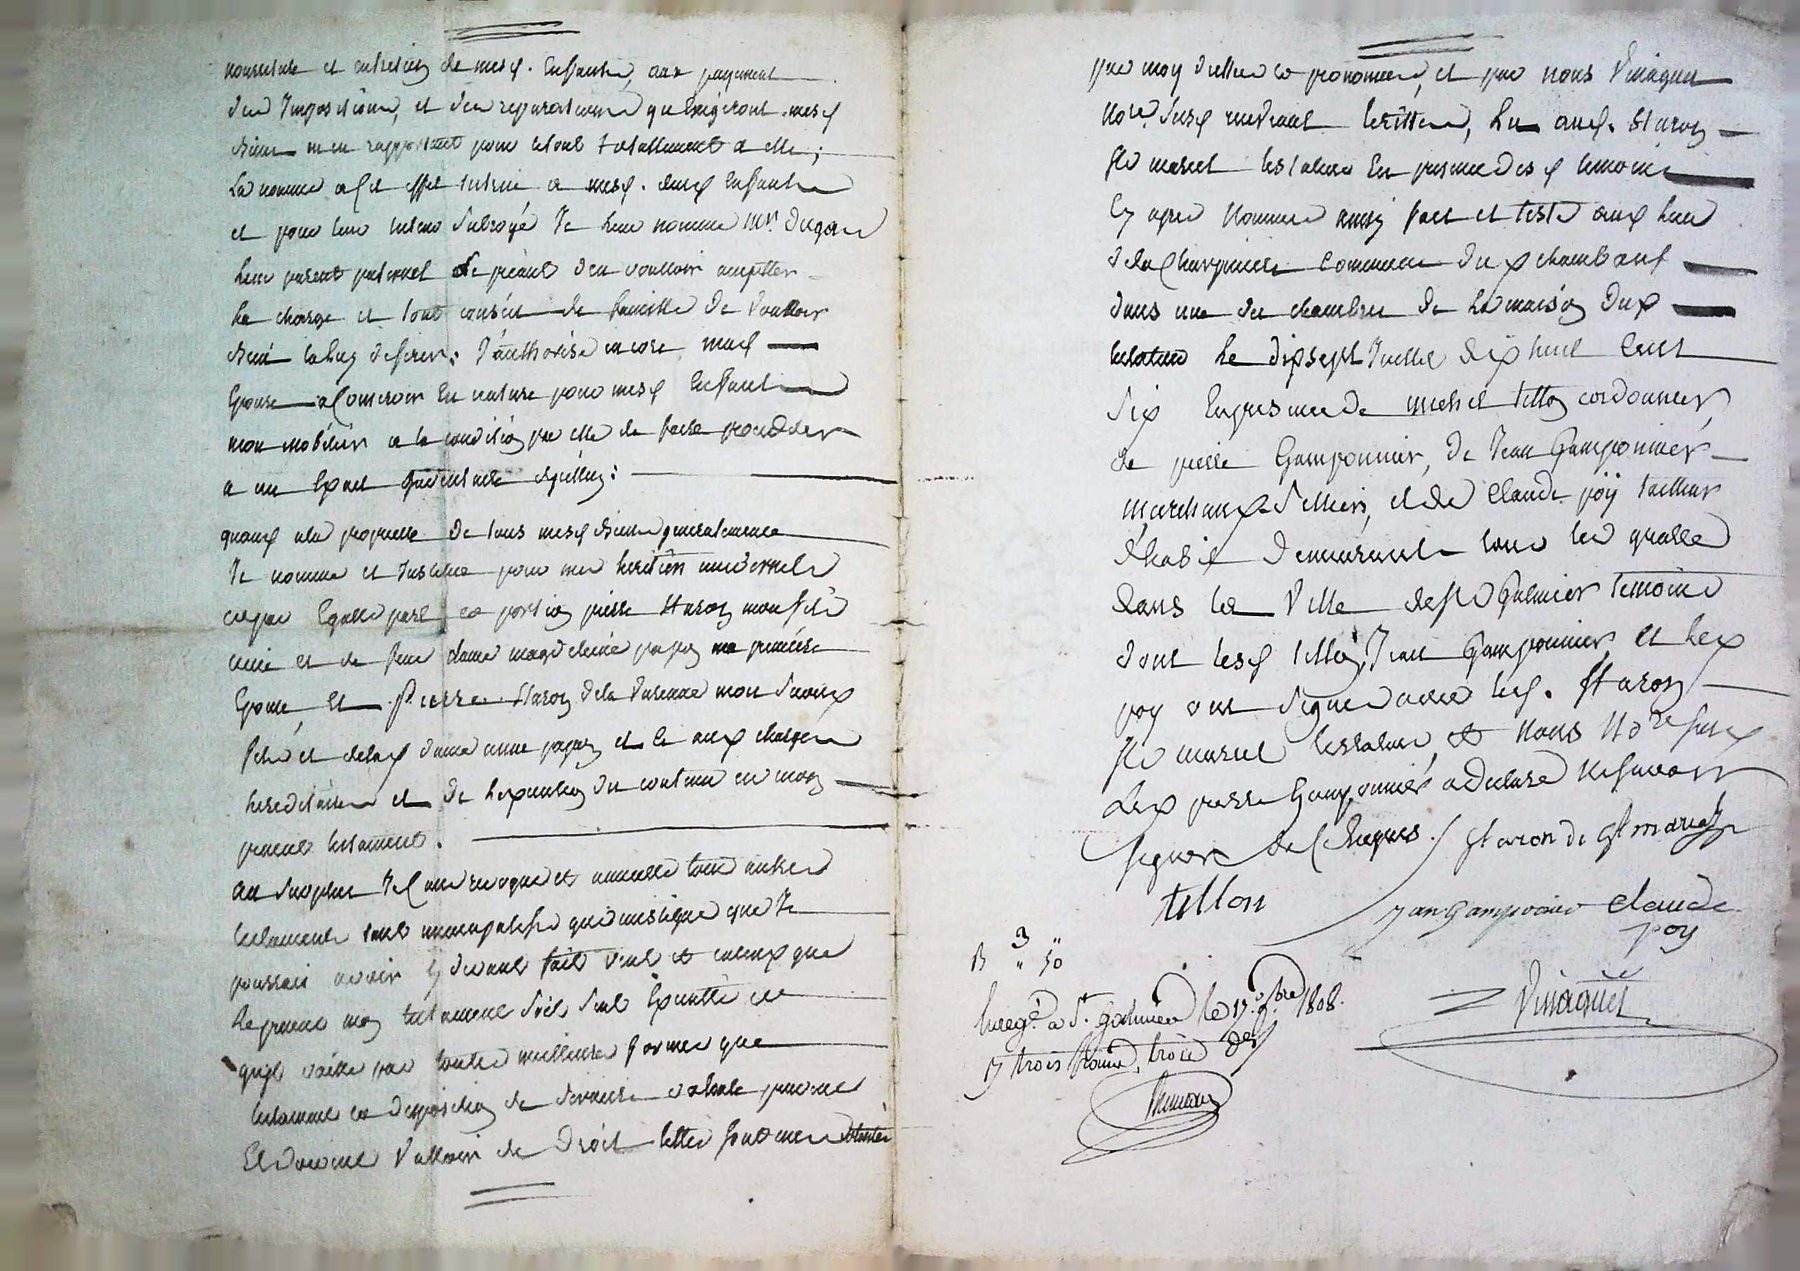 nourriture et entretien de mesd. Enfants, aux payement
des Impositions, et des reparations qu'Exigeront mesd
biens m'en rapportant pour letout totallement a elle;
La nomme a Cet effet tutrice a mesd. deux Enfants
et pour leur tuteur Subrogé Je leur nomme Mr. Dugas
leur parent paternel le priant den voulloir accepter
la charge et tout conseil de famille de voulloir
bien la luy deferer: J'authorise encore mad
Epouse a Conserver En nature pour mesd Enfants
mon mobilier a la condition par elle de faire proceder
a un Exact Inventaire
quand a la propriété de tous mesd biens generalement
Je nomme et Institue pour mes heritiers universels
et par Egalle part et portion pierre Staron mon fils
et de feue dame magdeleine papon ma premiere
Epouse, Et Pierre Staron dela Varenne mon Second
fils et delad dame anne papon et Ce aux charges
hereditaires et de l'execution du contenu en mon
present testament.
au Surplus Je Casse revoque et annulle tous autres
testaments tant nuncupatifs que mistiques que Je
pourrais avoir cy devant fait veut et entends que
le present mon testament Soit Seul Executté et
qu'il vaille par toutes meilleures formes que
testament et disposition de derniere volonté peuvent
Et doivent Valloir de Droit telles sont mes volontés
par moy dictées et prononcées, et par nous Vinagut
Nore. Susd recevant Ecrittes, lu aud. Staron
St marcel testateur En presence desd temoins
Cy apres Nommés ainsy fait et testé aud lieu
dela Charpiniere Commune dud chambeuf
dans une des chambres de la maison dud
testateur le dixsept Juillet dix huit Cent
Six En presence de michel tillon cordonnier,
de pierre Gamponnier, De Jean Gamponnier
marchands Selliers, et de Claude poÿ tailleur
d'habit demeurants tous les quatre
dans la Ville de St Galmier temoins
dont lesd tillon, Jean Gamponnier, et led
poy ont Signé avec led. Staron
St marcel testateur et Nous Nore Susd
led pierre Gamponnier a declaré ne Savoir
Signer de Ce Requis. / Staron de St marcel
tillon
Jean Gamponier Claude
poy
3 "
B " 50
Vinagut
Enregé. a St. Galmier le 17. 9bre 1808.
Rj trois francs, trois des